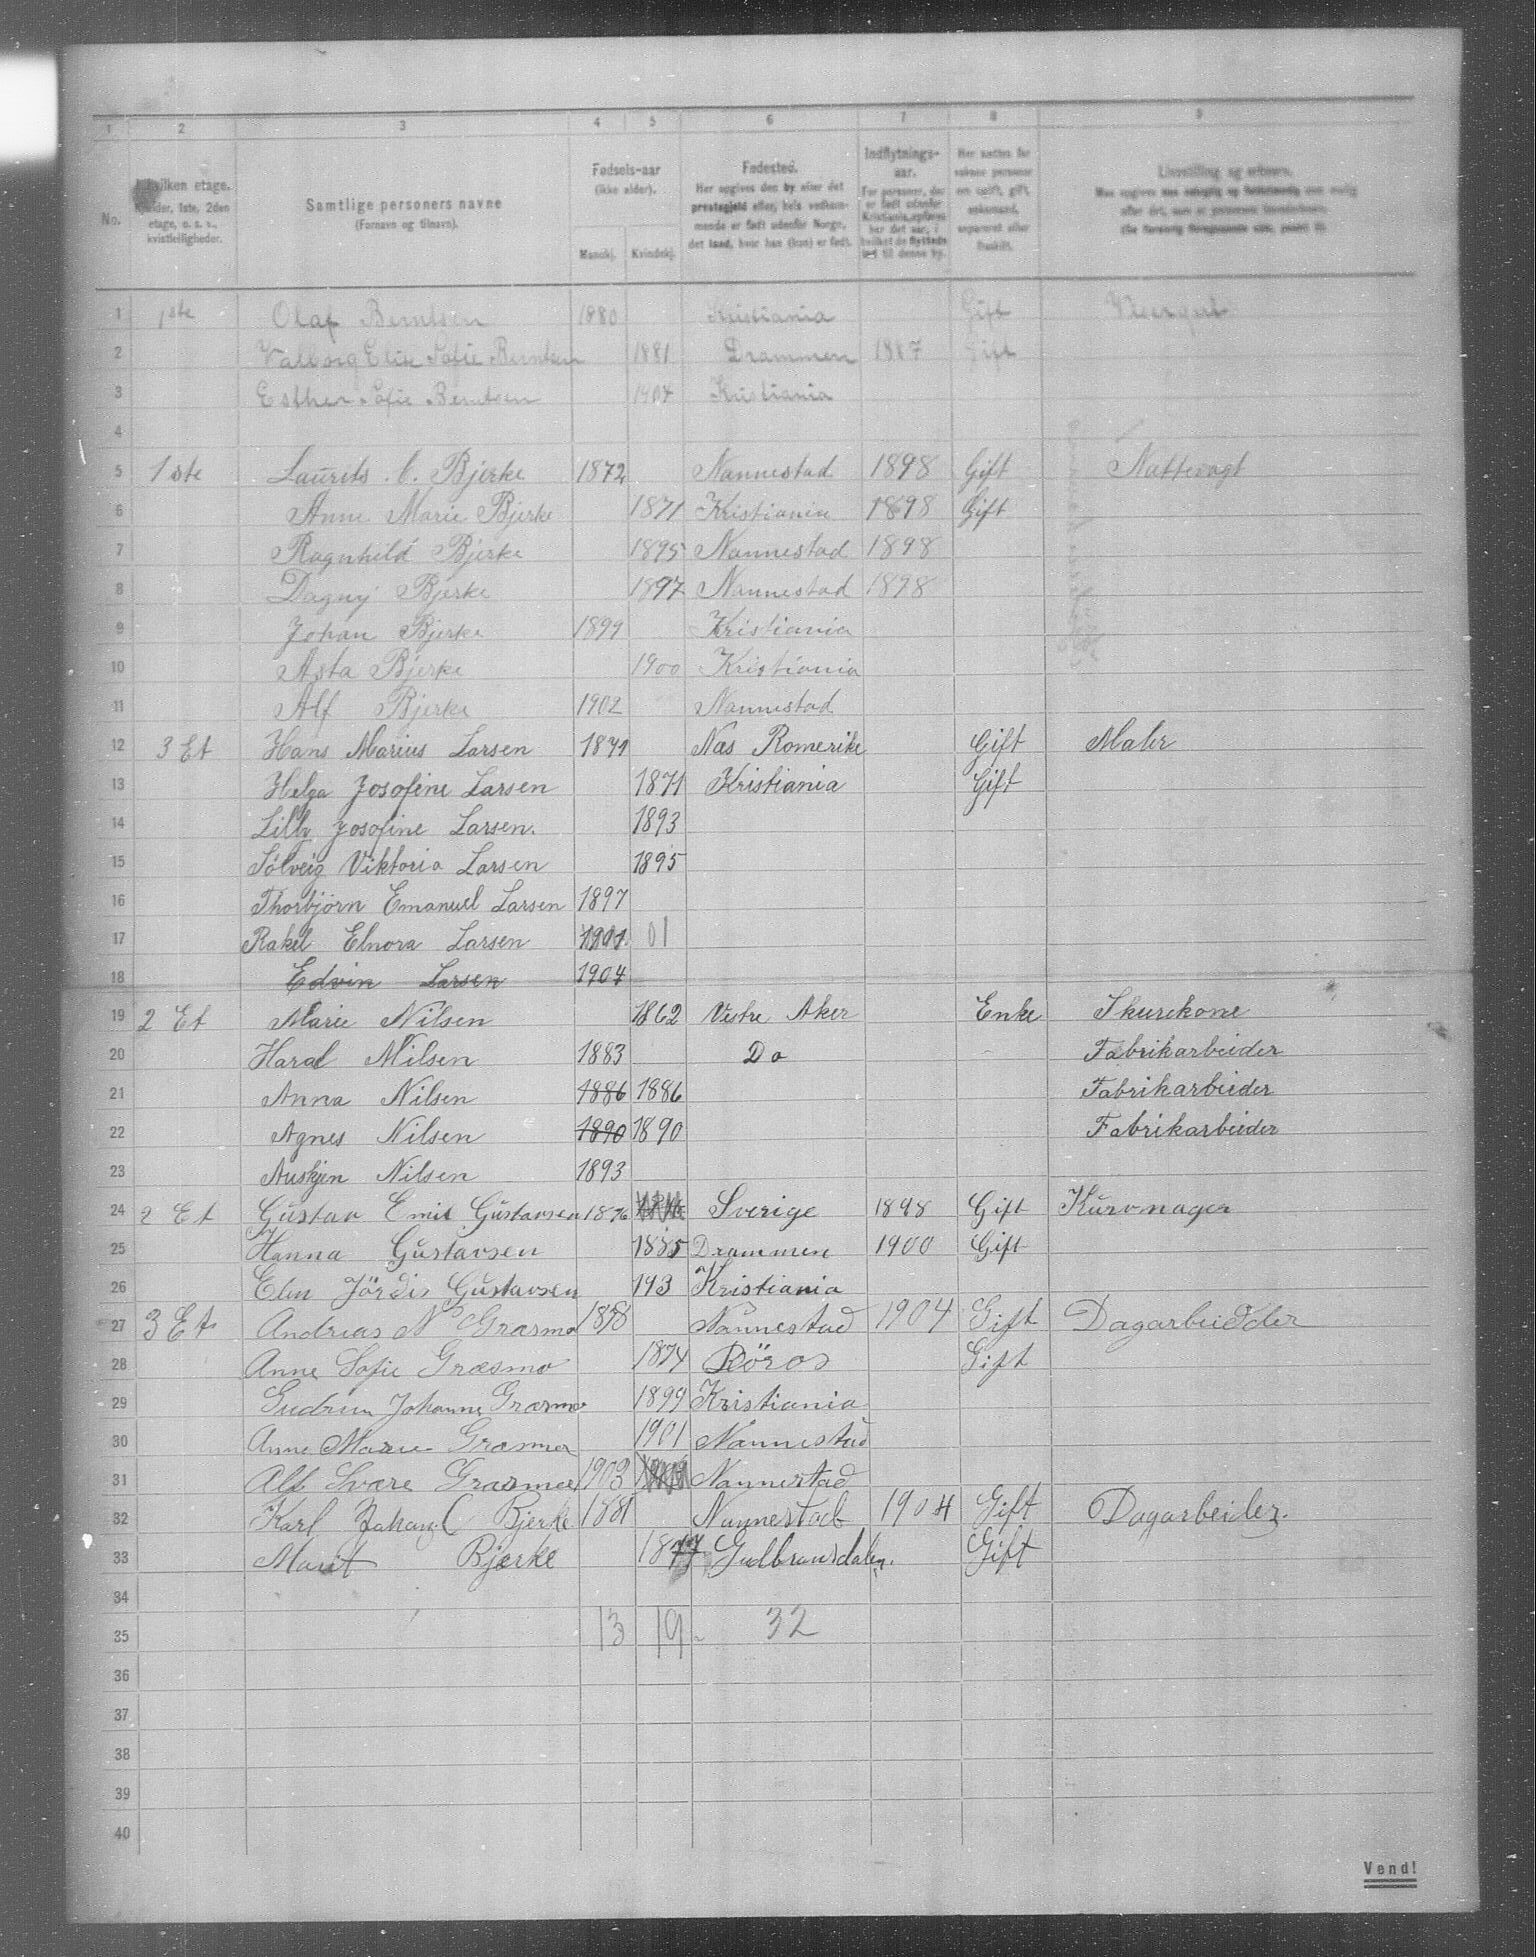 1 2 3 4 5 6 7 8 9
No. hvilken etage. Kjelder, 1ste, 2den etage, o. s. v., kvistleiligheder. Samtlige personers navne (Fornavn og tilnavn). Fødsels-aar (ikke alder). Mandkj. Kvindekj. Fødested. Her opgives den by eller det prestegjeld eller, hvis vedkommende er født udenfor Norge, det land, hvor han (hun) er født. Indflytnings-aar. For personer, der er født udenfor Kristiania, opføres her det aar, i hvilket de flyttede ind til denne by. Her sættes for voksne personer om ugift, gift, enkemand, separeret eller fraskilt. Livsstilling og erhverv.
1 1ste Olaf Berntsen 1880 Kristiania Gift
2 Valborg Elise Sofie Berntsen 1881 Drammen 1887 Gift
3 Esther Sofie Berntsen 1904 Kristiania
4
5 1ste Laurits C. Bjerke 1872 Nannestad 1898 Gift Nattevagt
6 Anne Marie Bjerke 1871 Kristiania 1898 Gift
7 Ragnhild Bjerke 1895 Nannestad 1898
8 Dagny Bjerke 1897 Nannestad 1898
9 Johan Bjerke 1899 Kristiania
10 Asta Bjerke 1900 Kristiania
11 Alf Bjerke 1902 Nannestad
12 3 Et Hans Marius Larsen 1871 Nas Romerike Gift Maler
13 Helga Josofine Larsen 1871 Kristiania Gift
14 Lilly Josofine Larsen. 1893
15 Solveig Viktoria Larsen 1895
16 Thorbjörn Emanuel Larsen 1897
17 Rakel Elnora Larsen 1901 01
18 Edvin Larsen 1904
19 2 Et Marie Nilsen 1862 Vestre Aker Enke Skurekone
20 Haral Nilsen 1883 Do Fabrikarbeider
21 Anna Nilsen 1886 1886 Fabrikarbeider
22 Agnes Nilsen 1890 1890 Fabrikarbeider
23 Auskjen Nilsen 1893
24 2 Et Gustav Emil Gustavsen 1876 Sverige 1898 Gift Kurvmager
25 Hanna Gustavsen 1885 Drammen 1900 Gift
26 Elen Jördis Gustavsen 193 Kristiania
27 3 Et Andrias N Græsmo 1878 Nannestad 1904 Gift Dagarbeidder
28 Anne Sofie Græsmo 1874 Röros Gift
29 Gudrun Johanne Græsmo 1899 Kristiania
30 Anne Marie Græsmo 1901 Nannestad
31 Alf Svare Græsmo 1903 Nannestad
32 Karl Johan C Bjerke 1881 Nannestad 1904 Gift Dagarbeider.
33 Marit Bjerke 1877 Gulbransdalen. Gift
34
35 13 19 32
36
37
38
39
40
Vend!